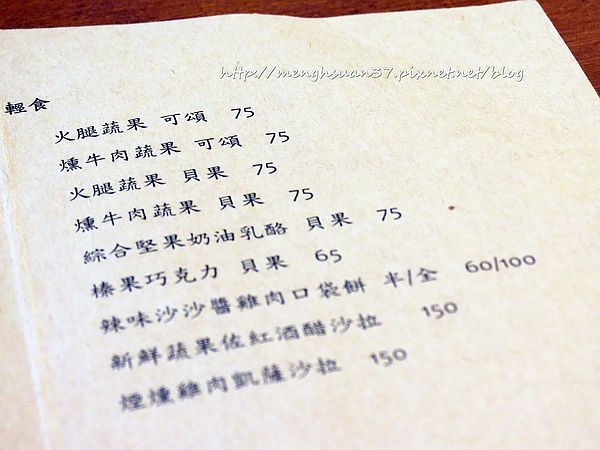 http://menghsuan37.pixnet.net/blog
輕食
火腿蔬果 可頌 75
燻牛肉蔬果 可頌 75
火腿蔬果 貝果 75
燻牛肉蔬果 貝果 75
綜合堅果奶油乳酪 貝果 75
榛果巧克力 貝果 65
辣味沙沙醬雞肉口袋餅 半/全 60/100
新鮮蔬果佐紅酒醋沙拉 150
煙燻雞肉凱薩沙拉 150